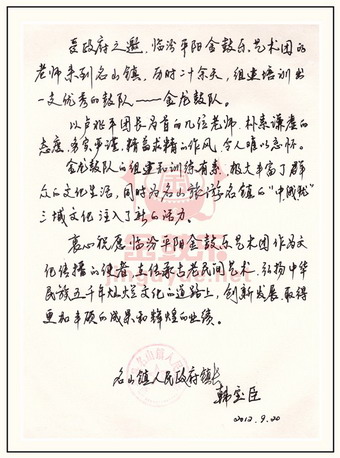 受政府之邀,临汾平阳金鼓乐艺术团的
老师来到名山镇,历时二十余天,组建培训出
一支优秀的鼓队——金龙鼓队。
以卢兆平团长为首的九位老师,朴素谦虚的
态度,务实严谨,精益求精的作风,令人难以忘怀。
金龙鼓队的组建和训练有素,极大丰富了群
众的文化生活,同时为名山旅游名镇的“中俄
三域文化注入了新的活力。
衷心祝愿临汾平阳金鼓乐艺术团作为文
化传播的使者,在传承古老民间艺术,弘扬中华
民族五千年灿烂文化的道路上,创新发展,取得
更加丰硕的成果和辉煌的业绩。
名山镇人民政府镇长
韩宝臣
2012.9.20